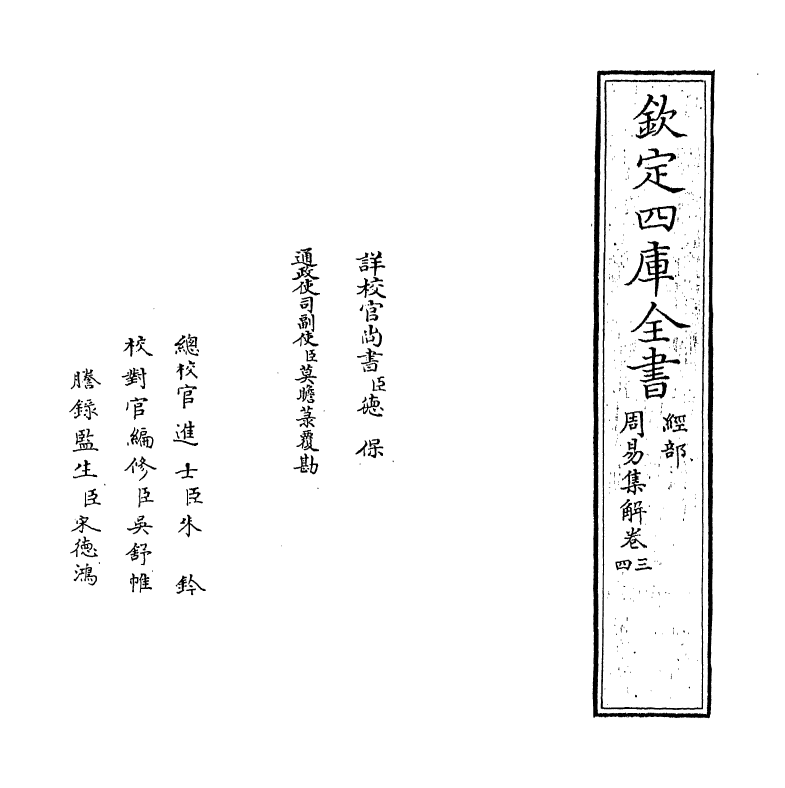 欽定四庫全書
經部
周易集解卷三四
詳校官尚書臣德保
通政使司副使臣莫瞻菉覆勘
總校官進士臣朱鈐
校對官編修臣吳舒帷
謄錄監生臣宋德鴻